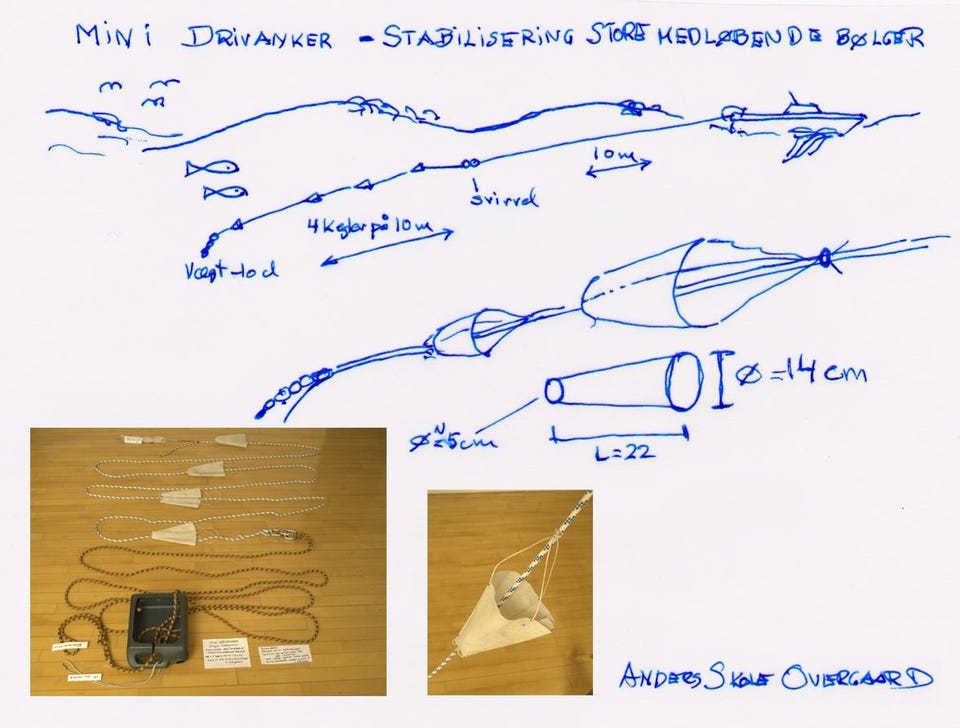 MINI DRIVANKER - STABILISERING STORE MEDLØBENDE BØLGER
10m
svirvel
4 Kegler på 10m
Vægt-lod
Ø=14 cm
Ø≈5cm
L=22
ANDERS SKOLE OVERGAARD